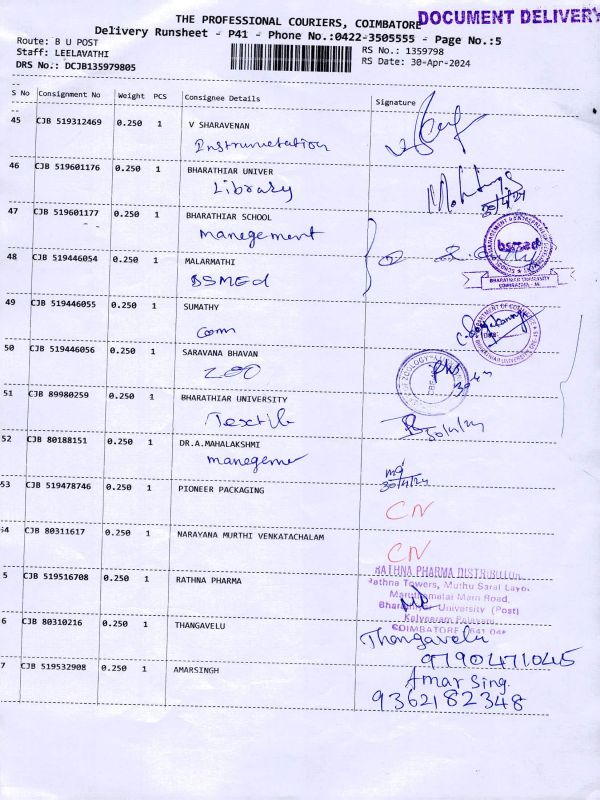 THE PROFESSIONAL COURIERS, COIMBATORE
DOCUMENT DELIVERY
Delivery Runsheet - P41 - Phone No.:0422-3505555 - Page No.:5
Route: B U POST
RS No.: 1359798
Staff: LEELAVATHI
RS Date: 30-Apr-2024
DRS No.: DCJB135979805
S No Consignment No Weight PCS Consignee Details Signature
45 CJB 519312469 0.250 1 V SHARAVENAN
Instrumetation
46 CJB 519601176 0.250 1 BHARATHIAR UNIVER
Library
30/4/24
47 CJB 519601177 0.250 1 BHARATHIAR SCHOOL
manegement
bsmed
48 CJB 519446054 0.250 1 MALARMATHI
BSMED
BHARATHIAR UNIVERSITY
COIMBATORE - 46
49 CJB 519446055 0.250 1 SUMATHY
Com
50 CJB 519446056 0.250 1 SARAVANA BHAVAN
ZOO
51 CJB 89980259 0.250 1 BHARATHIAR UNIVERSITY
Textile
30/4/24
52 CJB 80188151 0.250 1 DR.A.MAHALAKSHMI
manegeme
30/4/24
53 CJB 519478746 0.250 1 PIONEER PACKAGING
CN
54 CJB 80311617 0.250 1 NARAYANA MURTHI VENKATACHALAM
CN
5 CJB 519516708 0.250 1 RATHNA PHARMA
RATHNA PHARMA DISTRIBUTOR
Rathna Towers, Muthu Saral Layo
Maruthamalai Main Road,
Bharathiar University (Post)
COIMBATORE 641 046
6 CJB 80310216 0.250 1 THANGAVELU
Thangavelu
9790471045
7 CJB 519532908 0.250 1 AMARSINGH
Amar Sing
9362182348